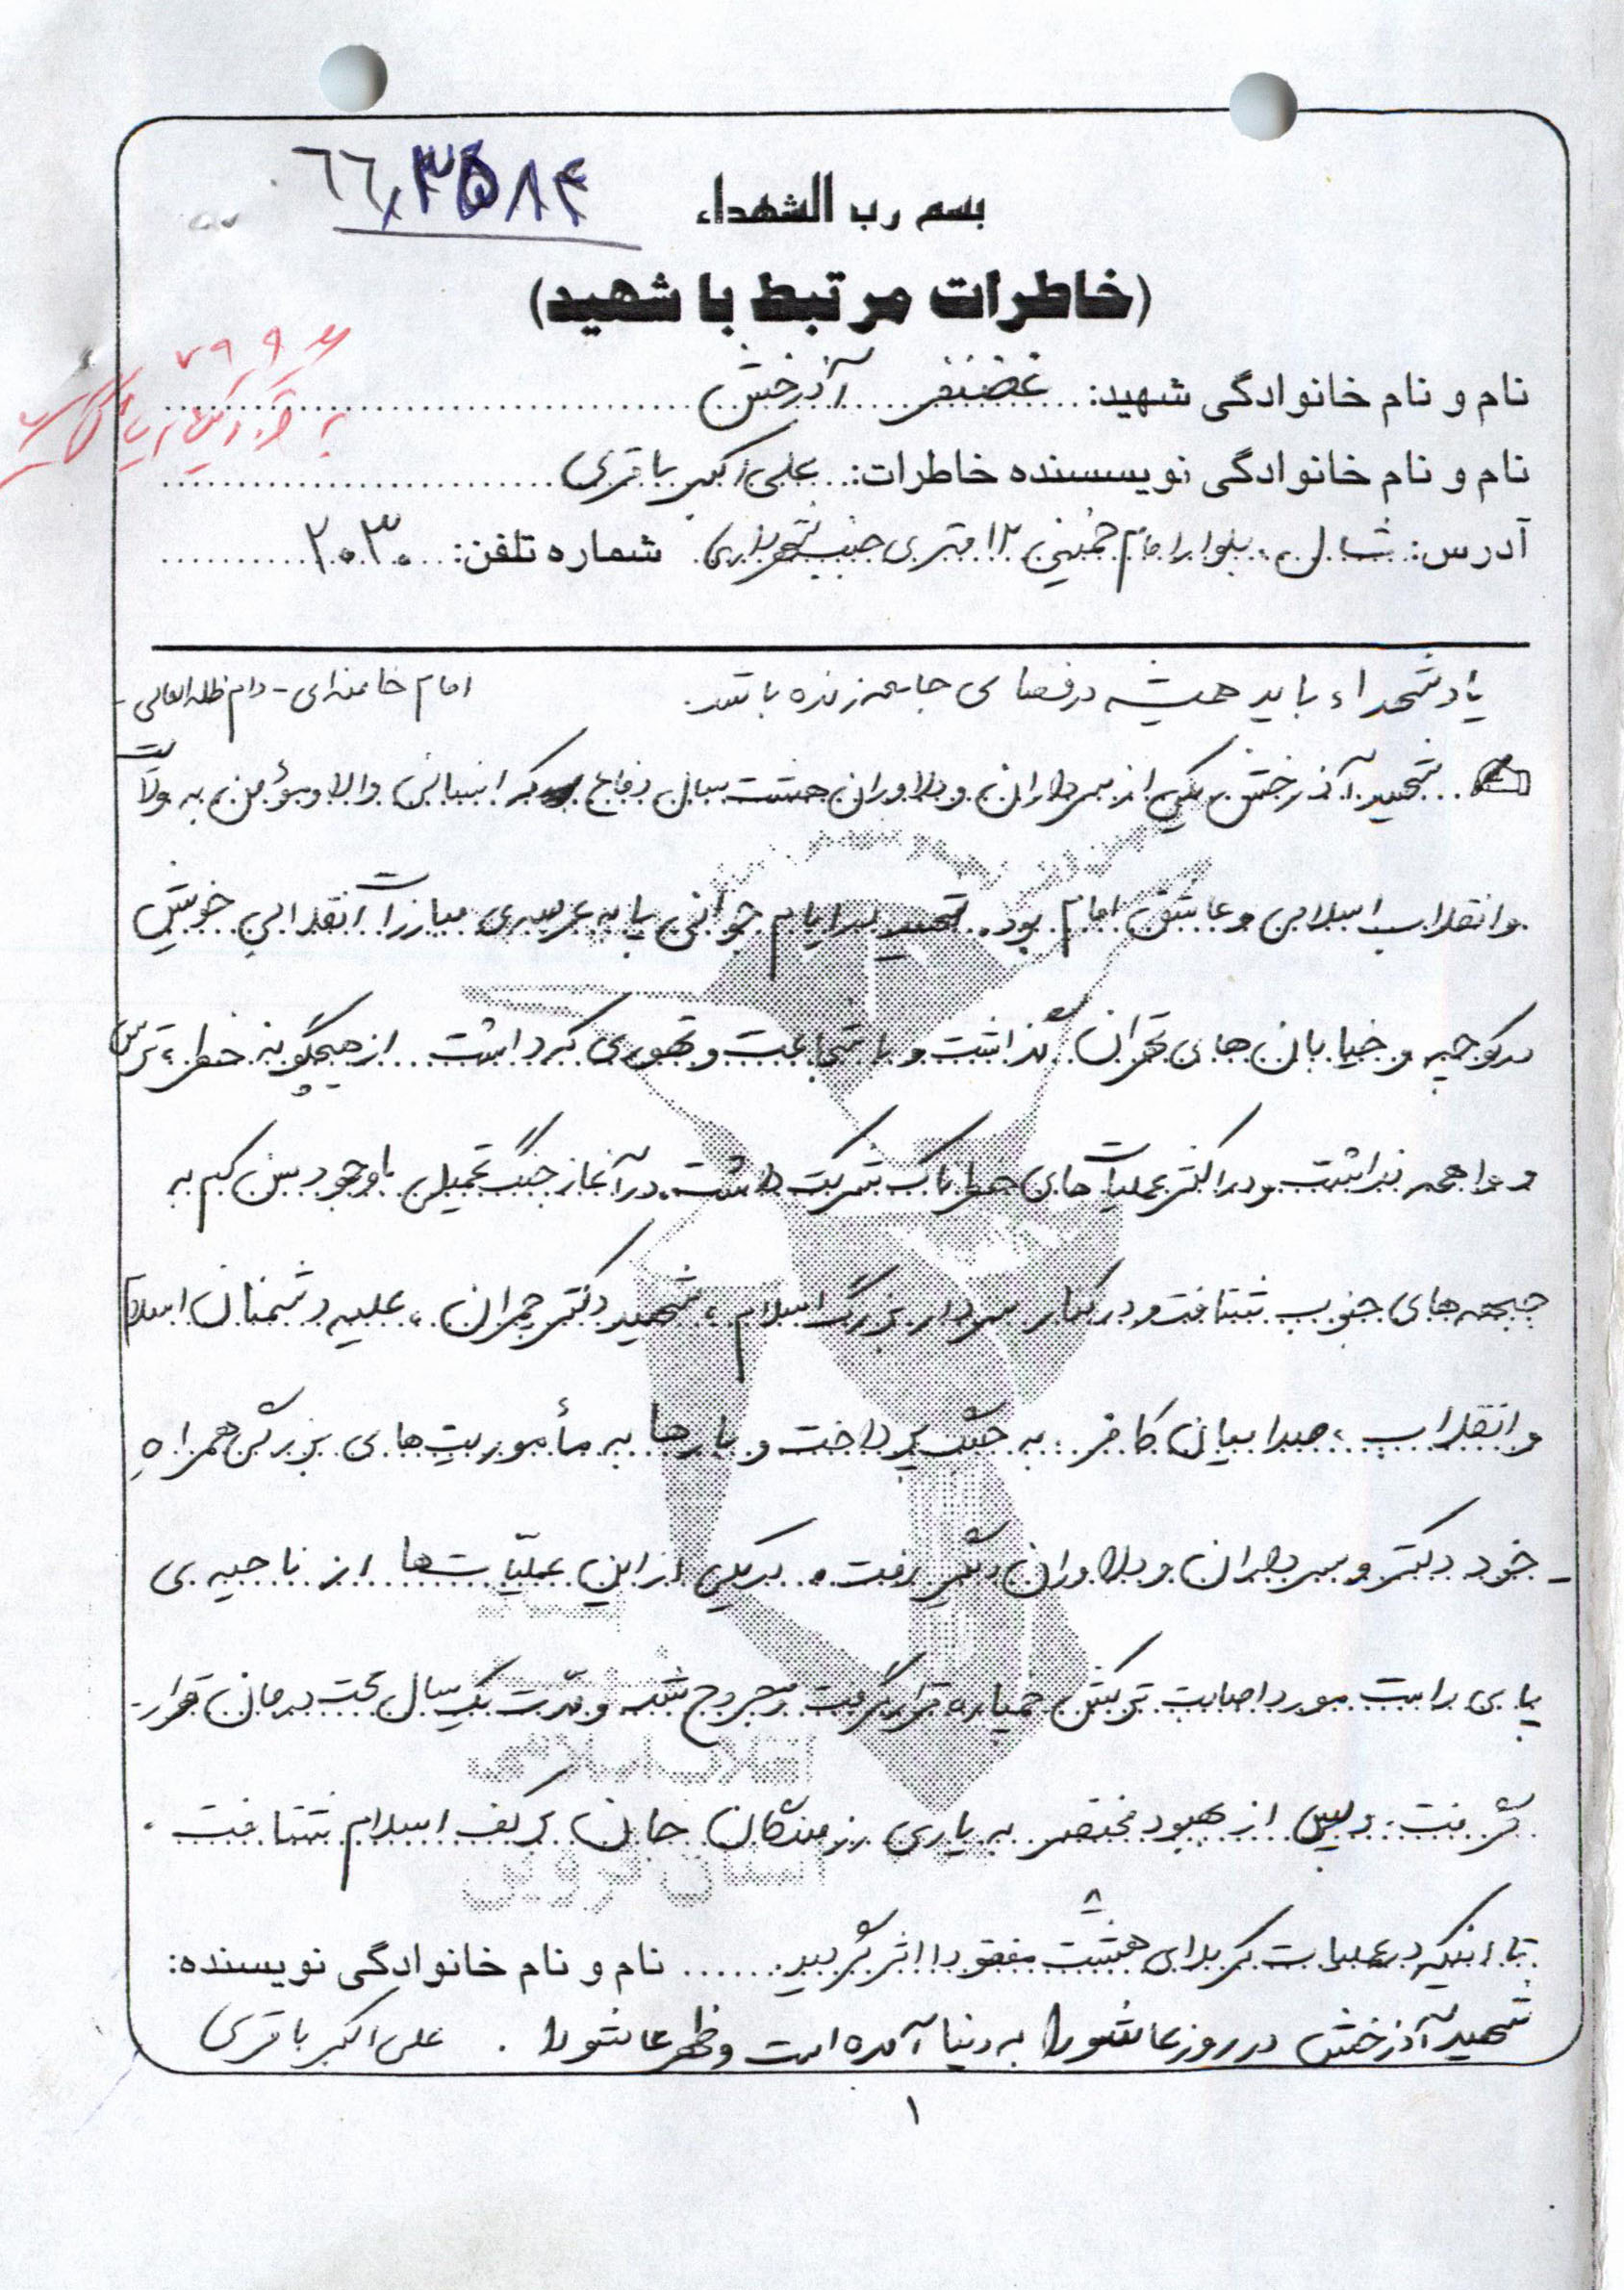 ۶۶,۳۵۸۴
بسم رب الشهداء
(خاطرات مرتبط با شهید)
۷۹۹
نام و نام خانوادگی شهید: غضنفر آذرخش
نام و نام خانوادگی نویسنده خاطرات: علی اکبر باقری
آدرس: شال، بلوار امام خمینی ۱۲ متری جنب شهرداری شماره تلفن: ۲۰۳۰
یاد شهداء باید همیشه در فضای جامعه زنده باشد. امام خامنه‌ای - دام ظله العالی -
شهید آذرخش یکی از سرداران و دلاوران هشت سال دفاع که انسانی والا و مؤمن به ولایت
و انقلاب اسلامی و عاشق امام بود. شهید در ایام جوانی پا به عرصه‌ی مبارزات انقلابی خویش
در کوچه و خیابان‌های تهران گذاشت و با شجاعت و تهوری که داشت از هیچگونه خطر، ترس
و واهمه نداشت و در اکثر عملیات‌های خطرناک شرکت داشت. در آغاز جنگ تحمیلی با وجود سن کم به
جبهه‌های جنوب شتافت و در کنار سردار بزرگ اسلام، شهید دکتر چمران، علیه دشمنان اسلام
و انقلاب، صدامیان کافر، به جنگ پرداخت و بارها به مأموریت‌های بزرگی همراه
- خود دکتر و سرداران و دلاوران دیگر رفت. در یکی از این عملیّات‌ها از ناحیه‌ی
پای راست مورد اصابت ترکش خمپاره قرار گرفت و مجروح شد و مدّت یک سال تحت درمان قرار-
گرفت. و پس از بهبود مختصر به یاری رزمندگان جان بر کف اسلام شتافت.
تا اینکه در عملیات کربلای هشت ۸ مفقودالاثر گردید. نام و نام خانوادگی نویسنده:
شهید آذرخش در روز عاشورا به دنیا آمده است و ظهر عاشورا. علی اکبر باقری
۱